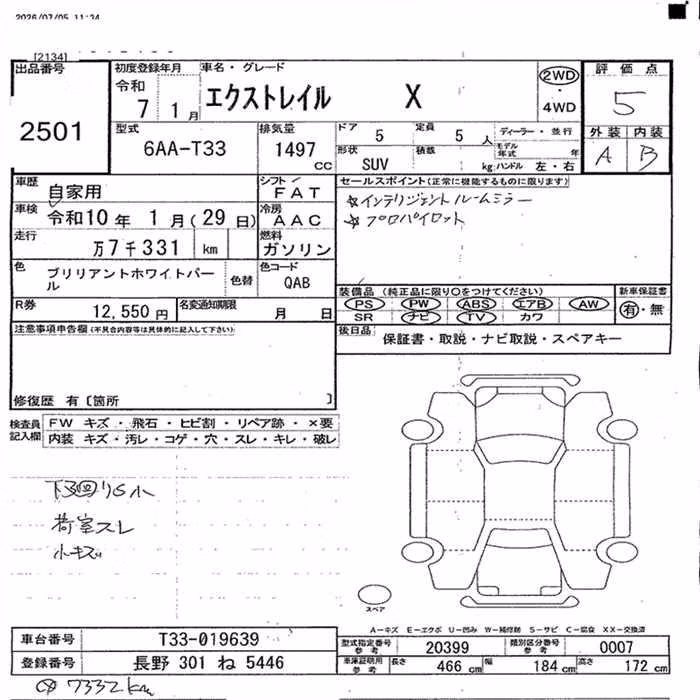 2026/07/05 11:34
[2134]
出品番号
2501
初度登録年月
令和
7 1月
車名・グレード
エクストレイル X
2WD
・
4WD
評価点
5
外装 内装
A B
型式
6AA-T33
排気量
1497 cc
ドア 5
定員 5 人
ディーラー・並行
形状 SUV
積載 kg
モデル年式 年
ハンドル 左・右
車歴 自家用
シフト FAT
車検 令和10年 1月(29日)
冷房 AAC
走行 万7千331 km
燃料 ガソリン
色 ブリリアントホワイトパール
色替
色コード QAB
R券 12,550円
名変通知期限 月 日
セールスポイント(正常に機能するものに限ります)
☆インテリジェントルームミラー
☆プロパイロット
装備品(純正品に限り○をつけてください)
PS PW ABS エアB AW
SR ナビ TV カワ
新車保証書
有・無
後日品 保証書・取説・ナビ取説・スペアキー
注意事項申告欄(不具合内容等は具体的に記入して下さい)
修復歴 有〔箇所 〕
検査員記入欄
FW キズ・飛石・ヒビ割・リペア跡・×要
内装 キズ・汚レ・コゲ・穴・スレ・キレ・破レ
荷室スレ
小キズ
スペア
A-キズ E-エクボ U-凹み W-補修跡 S-サビ C-腐食 XX-交換済
車台番号 T33-019639
登録番号 長野 301 ね 5446
型式指定番号 参考 20399
類別区分番号 参考 0007
車庫証明用 参考 長さ 466 cm 幅 184 cm 高さ 172 cm
7332km